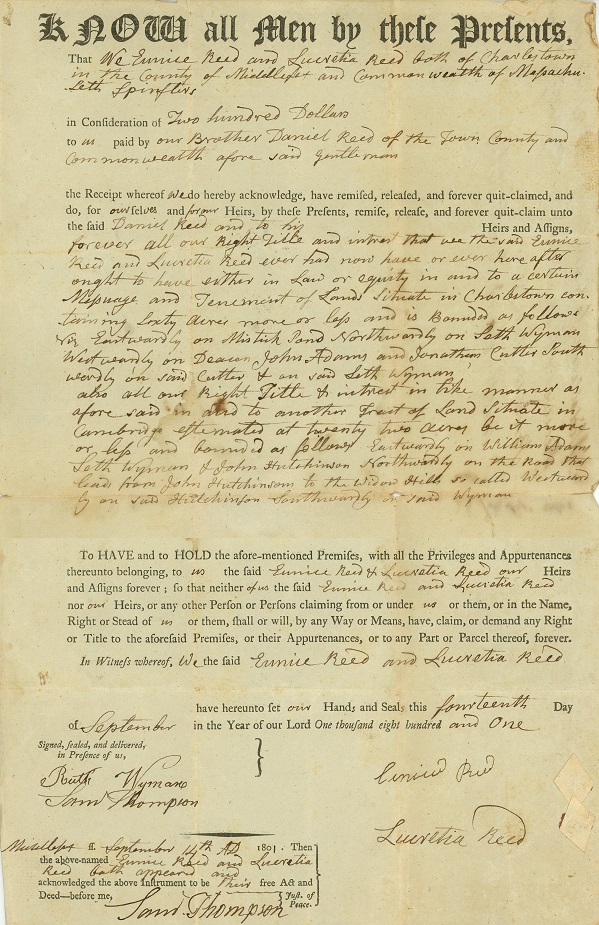 KNOW all Men by these Presents,
That We Eunice Reed and Lucretia Reed both of Charlestown
in the County of Middlesex and Commonwealth of Massachu-
setts Spinsters
in Consideration of Two hundred Dollars
to us paid by our Brother Daniel Reed of the Town County and
Commonwealth afore said Gentleman
the Receipt whereof we do hereby acknowledge, have remised, released, and forever quit-claimed, and
do, for ourselves and for our Heirs, by these Presents, remise, release, and forever quit-claim unto
the said Daniel Reed and to his Heirs and Assigns,
forever all our Right Title and intrest that we the said Eunice
Reed and Lucretia Reed ever had now have or ever here after
ought to have either in Law or equity in and to a certain
Messuage and Tenement of Lands Situate in Charlestown con-
taining Sixty Acres more or less and is Bounded as follows
Viz Eastwardly on Mistick Pond Northwardly on Seth Wyman
Westwardly on Deacon John Adams and Jonathan Cutler South
wardly on said Cutler & on said Seth Wyman
also all our Right Title & intrest in like manner as
afore said in and to another Tract of Land Situate in
Cambridge estimated at twenty two acres be it more
or less and bounded as follows Eastwardly on William Adams
Seth Wyman & John Hutchinson Northwardly on the Road that
lead from John Hutchinsons to the Widow Hills so called Westward
by on said Hutchinson Southwardly on said Wyman
To HAVE and to HOLD the afore-mentioned Premises, with all the Privileges and Appurtenances
thereunto belonging, to us the said Eunice Reed & Lucretia Reed our Heirs
and Assigns forever; so that neither of us the said Eunice Reed and Lucretia Reed
nor our Heirs, or any other Person or Persons claiming from or under us or them, or in the Name,
Right or Stead of us or them, shall or will, by any Way or Means, have, claim, or demand any Right
or Title to the aforesaid Premises, or their Appurtenances, or to any Part or Parcel thereof, forever.
In Witness whereof, We the said Eunice Reed and Lucretia Reed
have hereunto set our Hands and Seals this fourteenth Day
of September in the Year of our Lord One thousand eight hundred and One
Signed, sealed, and delivered,
in Presence of us,
Ruth Wyman
Saml Thompson
Eunice Reed
Lucretia Reed
Middlesex ss. September 14th AD 1801. Then
the above-named Eunice Reed and Lucretia
Reed both appeared and
acknowledged the above Instrument to be their free Act and
Deed—before me, Just. of
Peace.
Saml Thompson